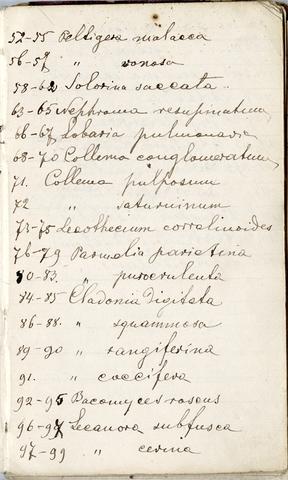 52-55 Peltigera malacca
56-57 " venosa
58-62 Solorina saccata
63-65 Nephroma resupinatum
66-67 Lobaria pulmonaria
68-70 Collema conglomeratum
71. Collema pulposum
72 " saturninum
73-75 Lecothecium corralinoides
76-79 Parmelia parietina
80-83. "
84-85 Cladonia Digitata
86-88. " squammosa
89-90 " rangiferina
91. " coccifera
92-95 Bacomyces roseus
96-97 Lecanora subfusca
97-99 " cerina